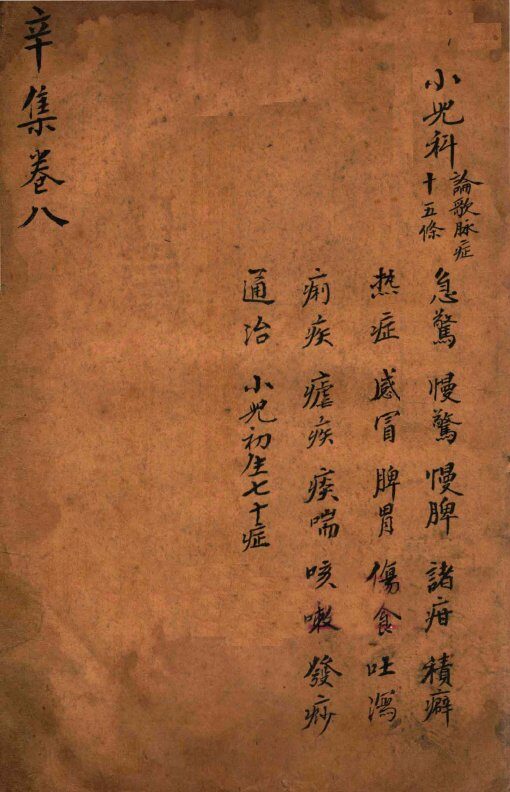 小児科 論歌脉症十五條
急驚 慢驚 慢脾 諸疳 積癖
热症 感冒 脾胃 傷食 吐瀉
痢疾 瘧疾 痰喘 咳嗽 發痧
通治 小児初生七十症
辛集卷八